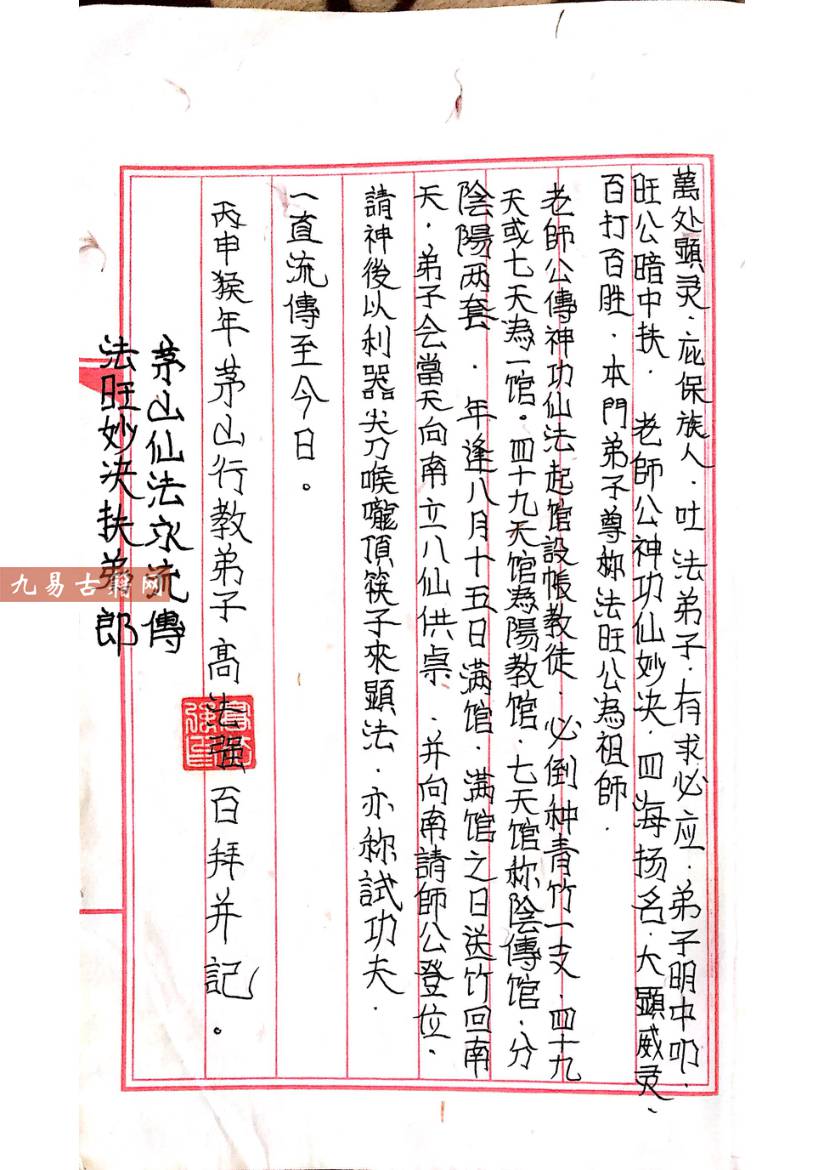 萬处顕灵．庇保族人．吐法弟子．有求必应．弟子明中叩．
旺公暗中扶．老師公神功仙妙决．四海扬名．大顕威灵．
百打百胜．本門弟子尊称法旺公為祖師．
老師公傳神功仙法起馆設帳教徒．必倒种青竹一支．四十九
天或七天為一馆。四十九天馆為陽教馆．七天馆称陰傳馆．分
陰陽两套．年逢八月十五日满馆．满馆之日送竹回南
天．弟子会當天向南立八仙供桌．并向南請師公登位．
請神後以利器尖刀喉嚨頂筷子來顕法．亦称試功夫．
一直流傳至今日。
丙申猴年茅山行教弟子高法强百拜并記。
茅山仙法永流傳
法旺妙决扶弟郎
九易古籍网